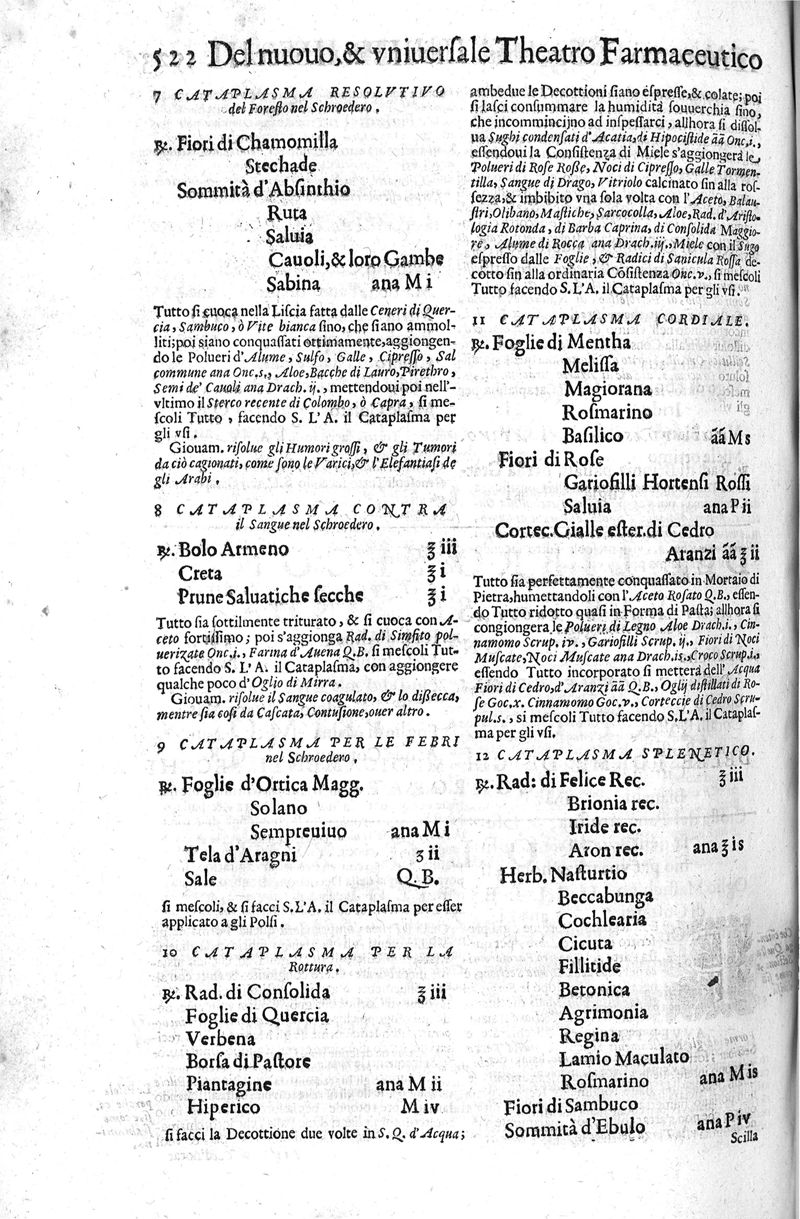 522 Del nuouo, & vniuerſale Theatro Farmaceutico
7 CATAPLASMA RESOLVTIVO
del Foreſto nel Schroedero.
℞. Fiori di Chamomilla
Stechade
Sommità d'Abſinthio
Ruta
Saluia
Cauoli, & loro Gambe
Sabina ana M i
Tutto ſi cuoca nella Liſcia fatta dalle Ceneri di Quer-
cia, Sambuco, ò Vite bianca ſino, che ſiano ammol-
liti; poi siano conquaſſati ottimamente, aggiongen-
do le Polueri d'Alume, Sulfo, Galle, Cipreſſo, Sal
commune ana Onc.s., Aloe, Bacche di Lauro, Pirethro,
Semi de' Cauoli ana Drach.ij., mettendoui poi nell'-
vltimo il Sterco recente di Colombo, ò Capra, ſi me-
ſcoli Tutto, facendo S. L'A. il Cataplaſma per
gli vſi.
Giouam. riſolue gli Humori groſſi, & gli Tumori
da ciò cagionati, come ſono le Varici, & l'Elefantiaſi de
gli Arabi.
8 CATAPLASMA CONTRA
il Sangue nel Schroedero.
℞. Bolo Armeno ℥ iii
Creta ℥ i
Prune Saluatiche ſecche ℥ i
Tutto ſia ſottilmente triturato, & ſi cuoca con A-
ceto fortiſſimo; poi s'aggionga Rad. di Simfito pol-
uerizate Onc.i., Farina d'Auena Q.B. ſi meſcoli Tut-
to facendo S.L' A. il Cataplaſma, con aggiongere
qualche poco d'Oglio di Mirra.
Giouam. riſolue il Sangue coagulato, & lo diſſecca,
mentre ſia coſi da Caſcata, Contuſione, ouer altro.
9 CATAPLASMA PER LE FEBRI
nel Schroedero.
℞. Foglie d'Ortica Magg.
Solano
Sempreuiuo ana M i
Tela d'Aragni ʒ ii
Sale Q.B.
ſi meſcoli, & ſi facci S.L'A. il Cataplaſma per eſſer
applicato a gli Polſi.
10 CATAPLASMA PER LA
Rottura.
℞. Rad. di Conſolida ℥ iii
Foglie di Quercia
Verbena
Borſa di Paſtore
Piantagine ana M ii
Hiperico M iv
ſi facci la Decottione due volte in S. Q. d'Acqua;
ambedue le Decottioni ſiano eſpreſſe, & colate; poi
ſi laſci conſummare la humidità ſouuerchia ſino,
che incommincijno ad inſpeſſarci, allhora ſi diſſol-
ua Sughi condenſati d'Acatia, di Hipociſtide āā Onc.i.,
eſſendoui la Conſiſtenza di Miele s'aggiongerà le
Polueri di Roſe Roſſe, Noci di Cipreſſo, Galle Tormen-
tilla, Sangue di Drago, Vitriolo calcinato ſin alla roſ-
ſezza, & imbibito vna ſola volta con l'Aceto, Balau-
ſtri, Olibano, Maſtiche, Sarcocolla, Aloe, Rad. d'Ariſto-
logia Rotonda, di Barba Caprina, di Conſolida Maggio-
re, Alume di Rocca ana Drach.iij., Miele con il Sugo
eſpreſſo dalle Foglie, & Radici di Sanicula Roſſa de-
cotto ſin alla ordinaria Cōſiſtenza Onc.v., ſi meſcoli
Tutto facendo S.L'A. il Cataplaſma per gli vſi.
11 CATAPLASMA CORDIALE.
℞. Foglie di Mentha
Meliſſa
Magiorana
Roſmarino
Baſilico āā M s
Fiori di Roſe
Gariofilli Hortenſi Roſſi
Saluia ana P ii
Cortec. Gialle eſter. di Cedro
Aranzi āā ℥ ii
Tutto ſia perfettamente conquaſſato in Mortaio di
Pietra, humettandoli con l'Aceto Roſato Q.B., eſſen-
do Tutto ridotto quaſi in Forma di Paſta; allhora ſi
congiongerà le Polueri di Legno Aloe Drach.i., Cin-
namomo Scrup. iv., Gariofilli Scrup. ij., Fiori di Noci
Muſcate, Noci Muſcate ana Drach.is., Croco Scrup.i.,
eſſendo Tutto incorporato ſi metterà dell' Acqua
Fiori di Cedro, d'Aranzi āā Q.B., Oglij diſtillati di Ro-
ſe Goc.x. Cinnamomo Goc.v., Corteccie di Cedro Scru-
pul.s., ſi meſcoli Tutto facendo S.L'A. il Cataplaſ-
ma per gli vſi.
12 CATAPLASMA SPLENETICO.
℞. Rad: di Felice Rec. ℥ iii
Brionia rec.
Iride rec.
Aron rec. ana ℥ is
Herb. Naſturtio
Beccabunga
Cochlearia
Cicuta
Fillitide
Betonica
Agrimonia
Regina
Lamio Maculato
Roſmarino ana M is
Fiori di Sambuco
Sommità d'Ebulo ana P iv
Scilla